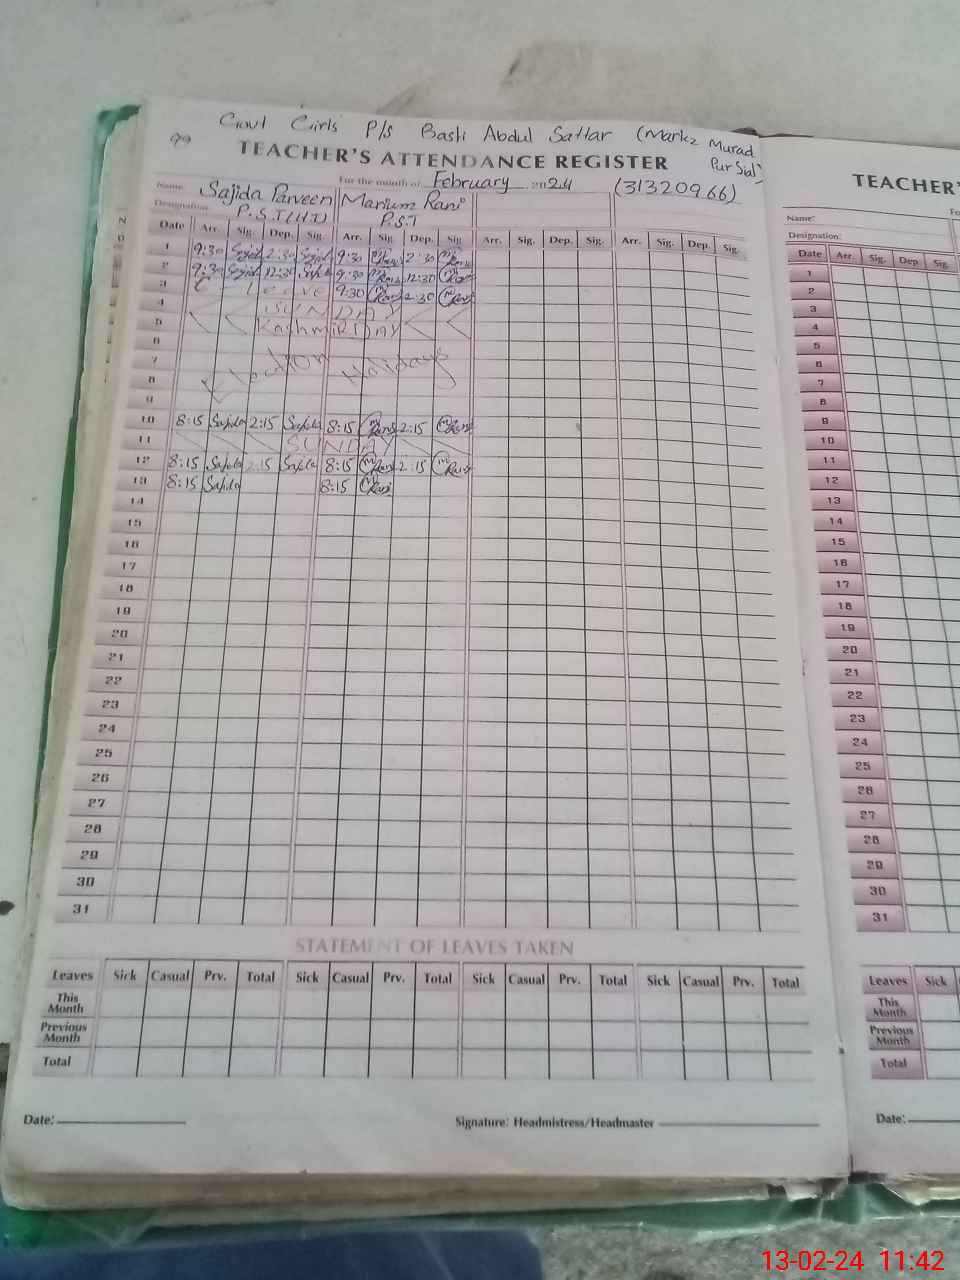 99 Govt Girls P/s Basti Abdul Sattar (Markz Murad Pur Sial)
TEACHER'S ATTENDANCE REGISTER
For the month of February 2024 (31320966)
Name: Sajida Parveen Marium Rani
Designation: P.S.T(H.T) P.S.T
Date Arr. Sig. Dep. Sig. Arr. Sig. Dep. Sig. Arr. Sig. Dep. Sig. Arr. Sig. Dep. Sig.
1 9:30 Sajida 2:30 Sajida 9:30 MRani 2:30 MRani
2 9:30 Sajida 12:30 Sajida 9:30 MRani 12:30 MRani
3 Leave 9:30 MRani 2:30 MRani
4 SUNDAY
5 Kashmir Day
6
7 Election Holidays
8
9
10 8:15 Sajida 2:15 Sajida 8:15 MRani 2:15 MRani
11 SUNDAY
12 8:15 Sajida 2:15 Sajida 8:15 MRani 2:15 MRani
13 8:15 Sajida 8:15 MRani
14
15
16
17
18
19
20
21
22
23
24
25
26
27
28
29
30
31
STATEMENT OF LEAVES TAKEN
Leaves Sick Casual Prv. Total Sick Casual Prv. Total Sick Casual Prv. Total Sick Casual Prv. Total
This Month
Previous Month
Total
Date: Signature: Headmistress/Headmaster
TEACHER'
Name:
Designation:
Date Arr. Sig. Dep. Sig.
1
2
3
4
5
6
7
8
9
10
11
12
13
14
15
16
17
18
19
20
21
22
23
24
25
26
27
28
29
30
31
Leaves Sick
This Month
Previous Month
Total
Date:
13-02-24 11:42